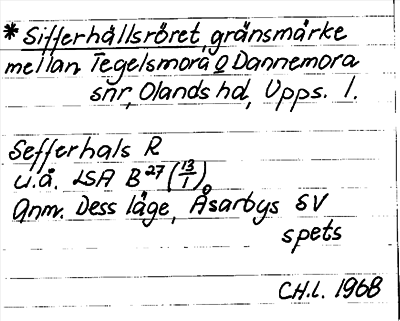 * Sifferhållsröret, gränsmärke
mellan Tegelsmora o Dannemora
snr, Olands hd, Upps. l.
Sefferhals R
u.å. LSA B 27 (13/1)
Anm. Dess läge, Åsarbys SV
spets
C.H.L. 1968